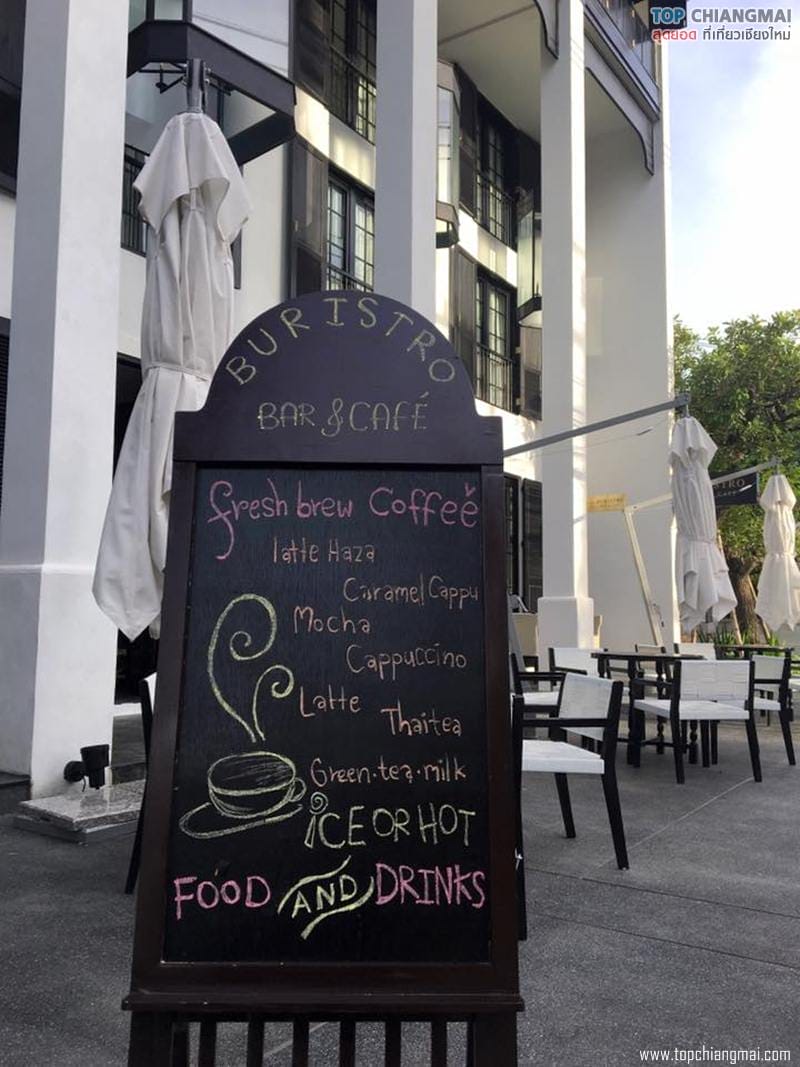 TOP CHIANGMAI
สุดยอด ที่เที่ยวเชียงใหม่
BURISTRO
BAR & CAFÉ
fresh brew Coffee
latte Haza
Caramel Cappu
Mocha
Cappuccino
Latte
Thai tea
Green·tea·milk
iCE OR HOT
FOOD AND DRINKS
www.topchiangmai.com